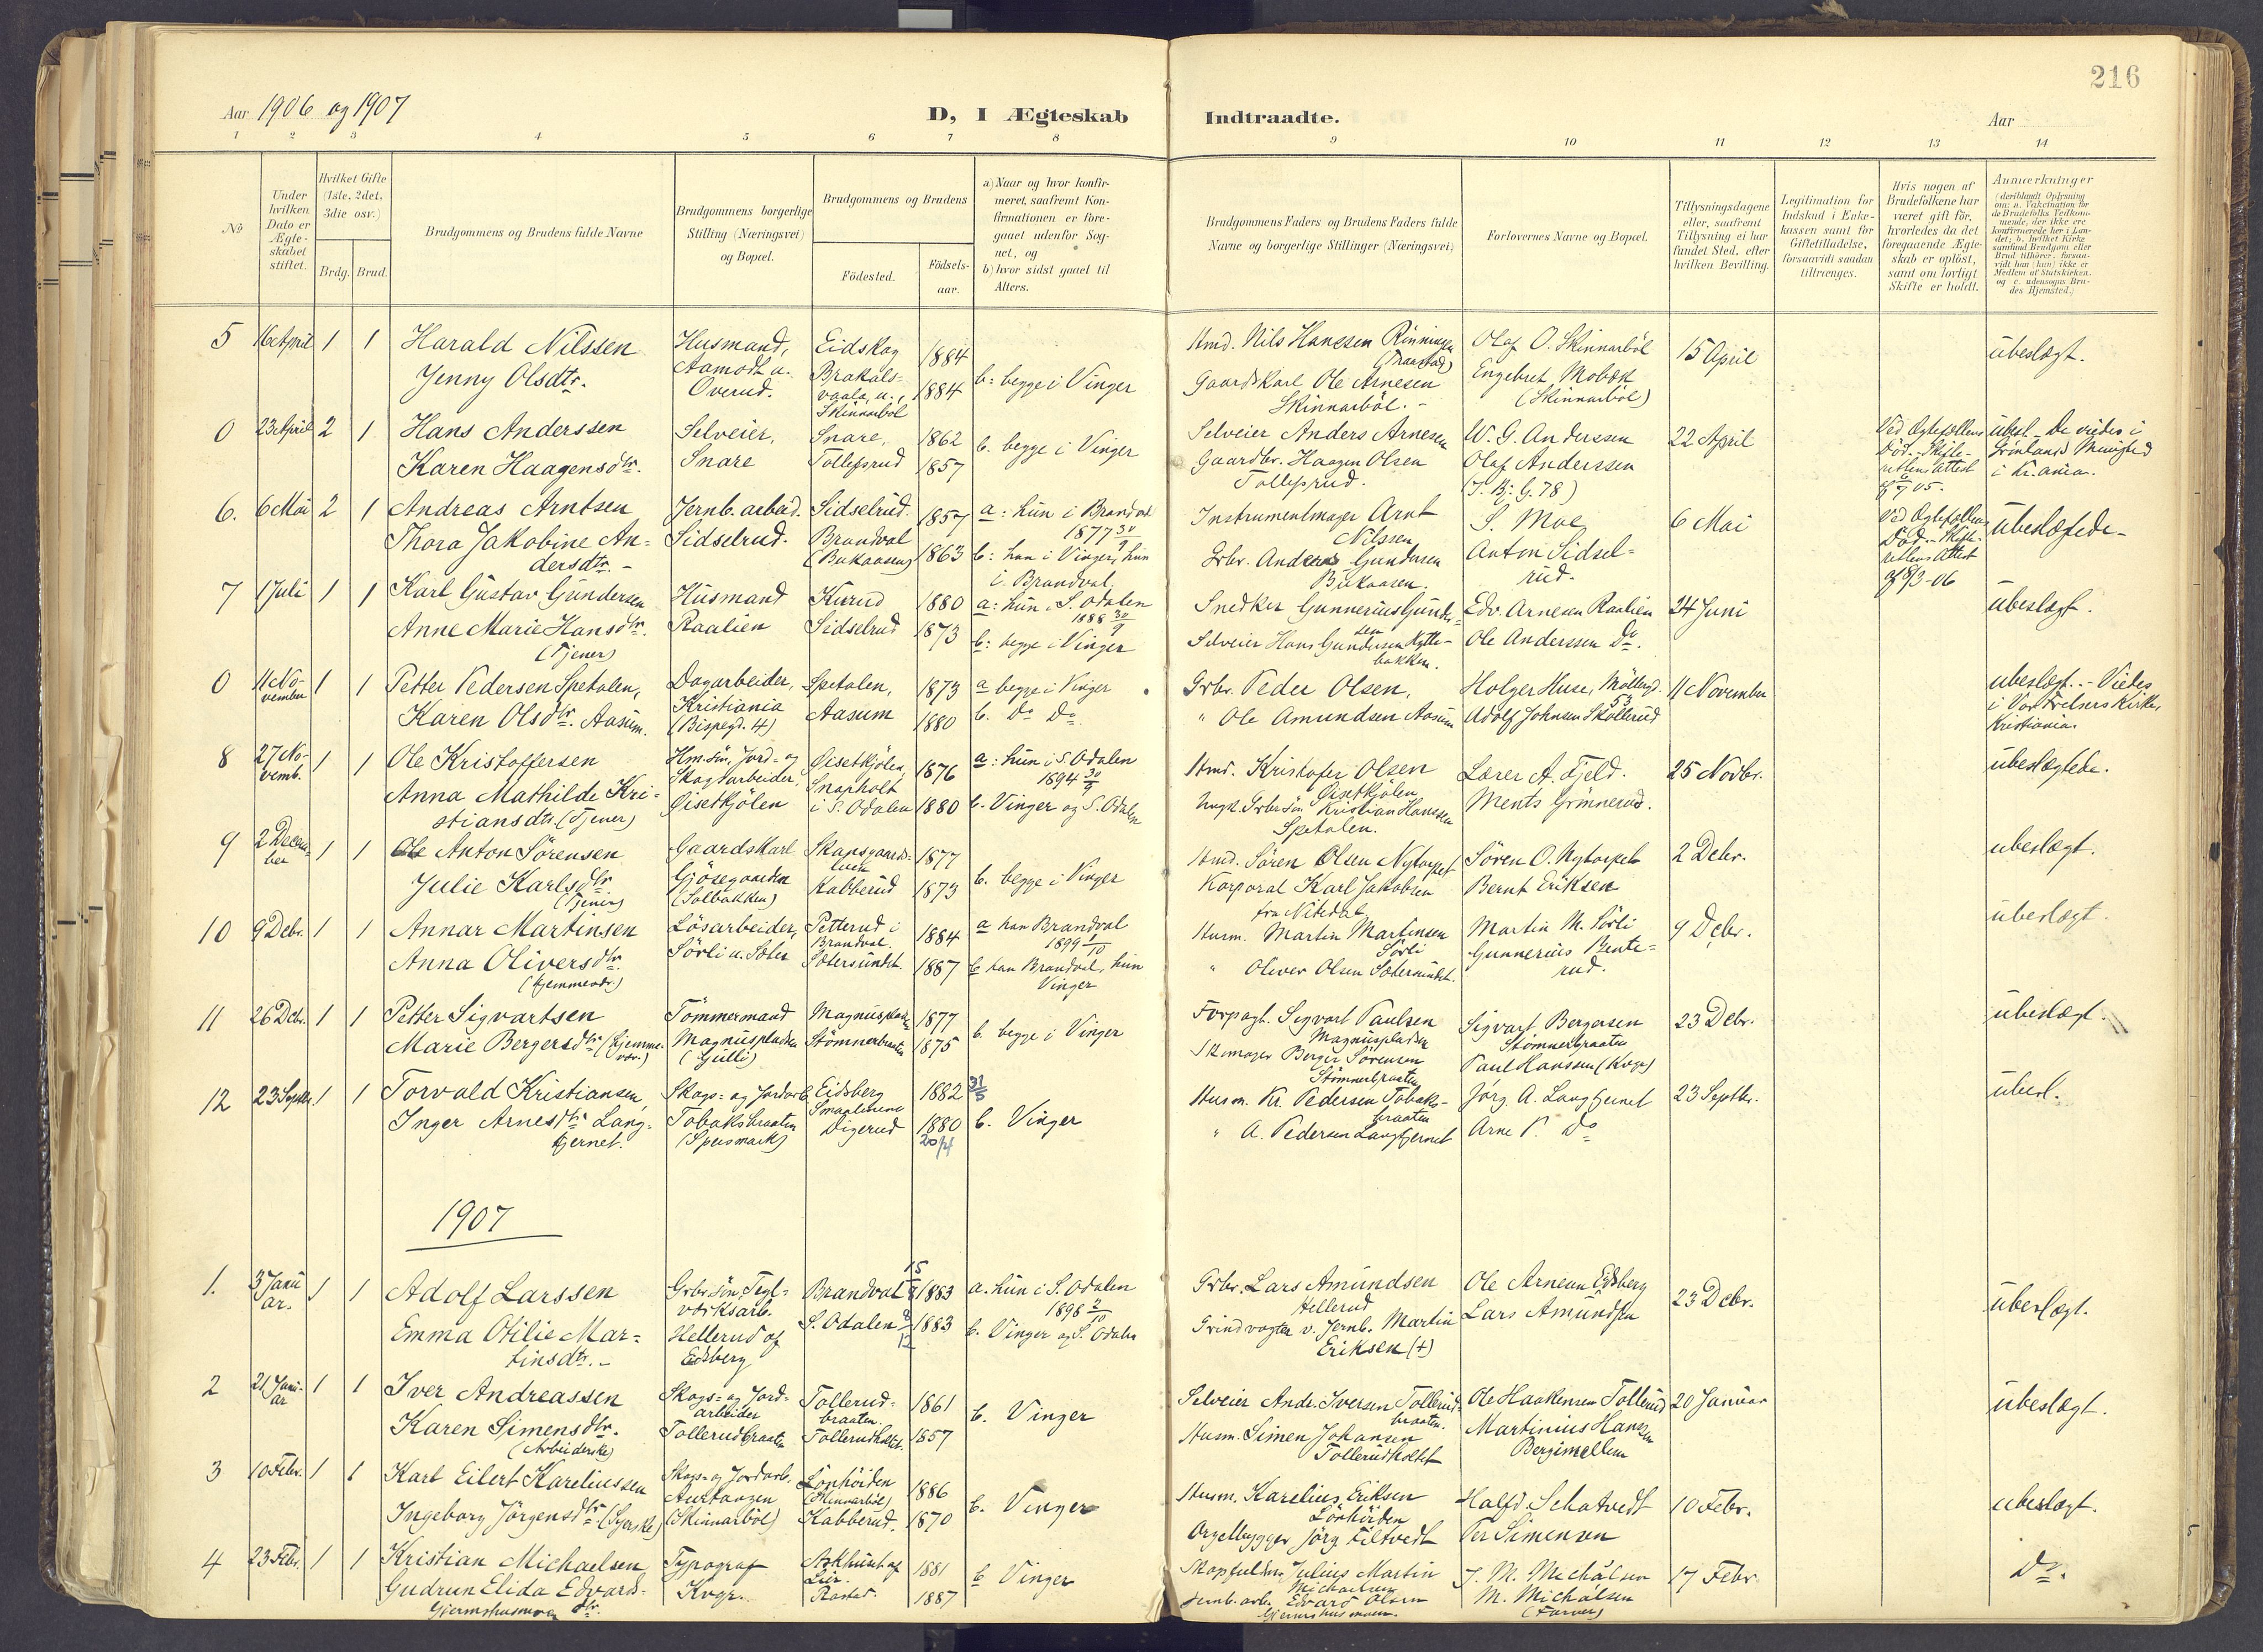 216
Aar 1906 og 1907
D, I Ægteskab Indtraadte.
Aar
1 2 3 4 5 6 7 8 9 10 11 12 13 14
No
Under hvilken Dato er Ægteskabet stiftet.
Hvilket Gifte (1ste, 2det, 3die osv.)
Brdg. Brud.
Brudgommens og Brudens fulde Navne
Brudgommens borgerlige Stilling (Næringsvei) og Bopæl.
Brudgommens og Brudens
Födested.
Födsels-aar.
a) Naar og hvor konfirmeret, saafremt Konfirmationen er foregaaet udenfor Sognet, og
b) hvor sidst gaaet til Alters.
Brudgommens Faders og Brudens Faders fulde Navne og borgerlige Stillinger (Næringsvei)
Forlovernes Navne og Bopæl.
Tillysningsdagene eller, saafremt Tillysning ei har fundet Sted, efter hvilken Bevilling.
Legitimation for Indskud i Enkekassen samt for Giftetilladelse, forsaavidt saadan tiltrænges.
Hvis nogen af Brudefolkene har været gift för, hvorledes da det foregaaende Ægteskab er oplöst, samt om lovligt Skifte er holdt.
Anmærkninger
5 16 April 1 1 Harald Nilssen
Jenny Olsdtr.
Husmand, Aamodt u. Overud.
Eidskog 1884
Brakals-vaala, u., Skinnarböl 1884
b: begge i Vinger
Hmd. Nils Hanssen Rinningen
Gaardskarl Ole Arnesen Skinnarböl. -
Olaf O. Skinnarböl
Engebret Mobæk (Skinnarböl)
15 April
ubeslægt.
0 23 April 2 1 Hans Anderssen
Karen Haagensdtr.
Selveier, Snare
Snare, 1862
Tollefsrud 1857
b. begge i Vinger
Selveier Anders Arnesen
Gaardbr. Haagen Olsen Tollefsrud.
W. G. Anderssen
Olaf Anderssen
22 April
Ved Ægtefællens Död. - Skifte-rettens Attest
ubesl. - De viedes i Grönlands Menighed i Kr.ania.
6. 6 Mai 2 1 Andreas Arntsen
Thora Jakobine An-dersdtr. -
Jernb. arbeid. Sidselrud.
Sidselrud. 1857
Brandval (Bukaasen) 1863
a: hun i Brandval 1877 30/9
b: han i Vinger, hun i Brandval.
Instrumentmager Arnt Nilssen
Grbr. Anders Gundersen Bukaasen.
S. Moe
Anton Sidsel-rud.
6 Mai
Ved Ægtefællens Död. - Skifte-rettens Attest af 8/3-06
ubeslægtede -
7 1 Juli 1 1 Karl Gustav Gundersen
Anne Marie Hansdtr. (Tjener)
Husmand Raalien
Kurud 1880
Sidselrud 1873
a: hun i S. Odalen 1888 30/9
b: begge i Vinger
Snedker Gunnerius Gunder-sen
Selveier Hans Gundersen Kytte-bakken.
Edv. Arnesen Raalien
Ole Anderssen Do.
24 Juni
ubeslægt.
0 11 No-vember 1 1 Petter Pedersen Spetalen,
Karen Olsdtr. Aasum.
Dagarbeider, Kristiania (Bispegd. 4)
Spetalen, 1873
Aasum 1880
a begge i Vinger
b. Do Do
Grbr. Peder Olsen,
" Ole Amundsen Aasum
Holger Huse, Möllergd. 53
Adolf Johnsen Skollerud
11 November
ubeslægt. - Viedes i Vor Frelsers Kirke, Kristiania.
8 27 No-vemb. 1 1 Ole Kristoffersen
Anna Mathilde Kri-stiansdtr. (Tjener)
Hm.sön, Jord- og Skogsarbeider, Öisetkjölen
Öisetkjölen, 1876
Snapholt i S. Odalen 1880
a: hun i S. Odalen 1894 30/9
b. Vinger og S. Odalen
Hmd. Kristofer Olsen Öisetkjölen
Ungk. Grbrsön Kristian Hanssen Spetalen.
Lærer A. Fjeld.
Ments Grönnerud.
25 Novbr.
ubeslægtede.
9 2 Decem-ber 1 1 Anton Sörensen
Julie Karlsdtr. (Tjener)
Gaardskarl Gjösegaarden (Solbakken)
1877
Kabberud 1873
b. begge i Vinger
Hmd. Sören Olsen Nytorpet
Korporal Karl Jakobsen fra Nitedal
Sören O. Nytorpet
Bernt Eriksen
2 Debr.
ubeslægt.
10 9 Debr. 1 1 Annar Martinsen
Anna Oliversdtr. (hjemmevær.)
Lösarbeider, Sörli u. Sæter
Petterud i Brandval. 1884
Sætersundet. 1887
a han Brandval 1899 1/10
b han Brandval, hun Vinger
Husm. Martin Martinsen Sörli
" Oliver Olsen Sætersundet.
Martin M. Sörli
Gunnerius Bente-rud.
9 Debr.
ubeslægt.
11 26 Debr. 1 1 Petter Sigvartsen
Marie Bergersdtr. (hjemme-vær.)
Tömmermand Magnuspladsen (Gulli)
Magnuspladsen 1877
Stömnerbraaten 1875
b. begge i Vinger
Forpagt. Sigvart Paulsen Magnuspladsen
Skomager Berger Sörensen Stömnerbraaten
Sigvart Bergersen Stömnerbraaten
Paul Hanssen (Kvgr)
23 Debr.
ubeslægt.
12 23 Septbr. 1 1 Torvald Kristiansen,
Inger Arnesdtr. Lang-tjernet.
Skogs- og Jordarb. Tobaksbraaten (Spersmark)
Eidsberg Smaalenene 1882 31/5
Digerud 1880 20/4
b. Vinger
Husm. Kr. Pedersen Tobaks-braaten
" A. Pedersen Langtjernet
Jörg. A. Langtjernet
Arne P. Do
23 Septbr.
ubesl.
1907
1. 3 Janu-ar. 1 1 Adolf Larssen
Emma Otilie Mar-tinsdtr. -
Grbrsön, Tegl-værksarb. Hellerud af Edsberg
Brandval 15/8 1883
S. Odalen 9/12 1883
a. hun i S. Odalen 1898 2/10
b. Vinger og S. Odalen
Grbr. Lars Amundsen Hellerud
Grindvogter v. Jernb. Martin Eriksen (+)
Ole Arnesen Edsberg
Lars Amundsen
23 Debr.
ubeslægt.
2 21 Janu-ar 1 1 Iver Andreassen
Karen Simensdtr. (Arbeiderske)
Skogs- og Jord-arbeider Tollerudbraaten
Tollerud-braaten. 1861
Tollerudholtet. 1857
b. Vinger
Selveier Andr. Iversen Tollerud-braaten.
Husm. Simen Johansen Tollerudholtet
Ole Haakensen Tollerud
Martinius Hanssen Bergimellem
20 Januar
ubeslægt.
3 10 Febr. 1 1 Karl Eilert Kareliussen
Ingeborg Jörgensdtr. (Syerske)
Skogs- og Jordarb. Aurtangen (Skinnarböl)
Lönhöiden (Skinnarböl) 1886
Kabberud. 1870
b. Vinger
Husm. Karelius Eriksen Lönhöiden
Orgelbygger Jörg. Filtvedt
Halfd. Schøtvedt
Per Simensen
10 Febr.
ubeslægt.
4 23 Febr. 1 1 Kristian Michaelsen
Gudrun Elida Edvards-dtr. Gjermshusmoen
Typograf Kvgr.
Lier. 1881
Rastad. 1887
b Vinger
Julius Martin Michaelsen
Jernb. arb. Edvard Olsen Gjermshusmoen.
J. M. Michalsen
M. Michalsen (Farver)
17 Febr.
Do.